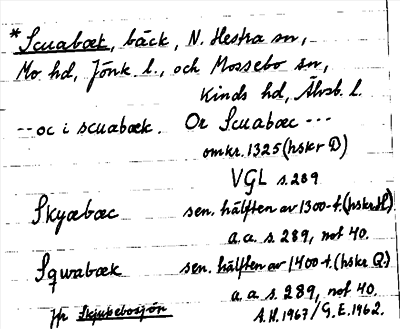 *Scuabæk, bäck, N. Hestra sn,
Mo hd, Jönk. l., och Mossebo sn,
Kinds hd, Älvsb. l.
-- oc i scuabæk. Or Scuabæc ---
omkr. 1325 (hskr D)
VGL s. 289
Skyæbæc sen. hälften av 1300-t. (hskr H).
a.a. s. 289, not 40.
Sqwabæk sen. hälften av 1400-t. (hskr Q.)
a.a. s. 289, not 40.
Jfr Skjubebosjön A.H. 1967/G.E. 1962.